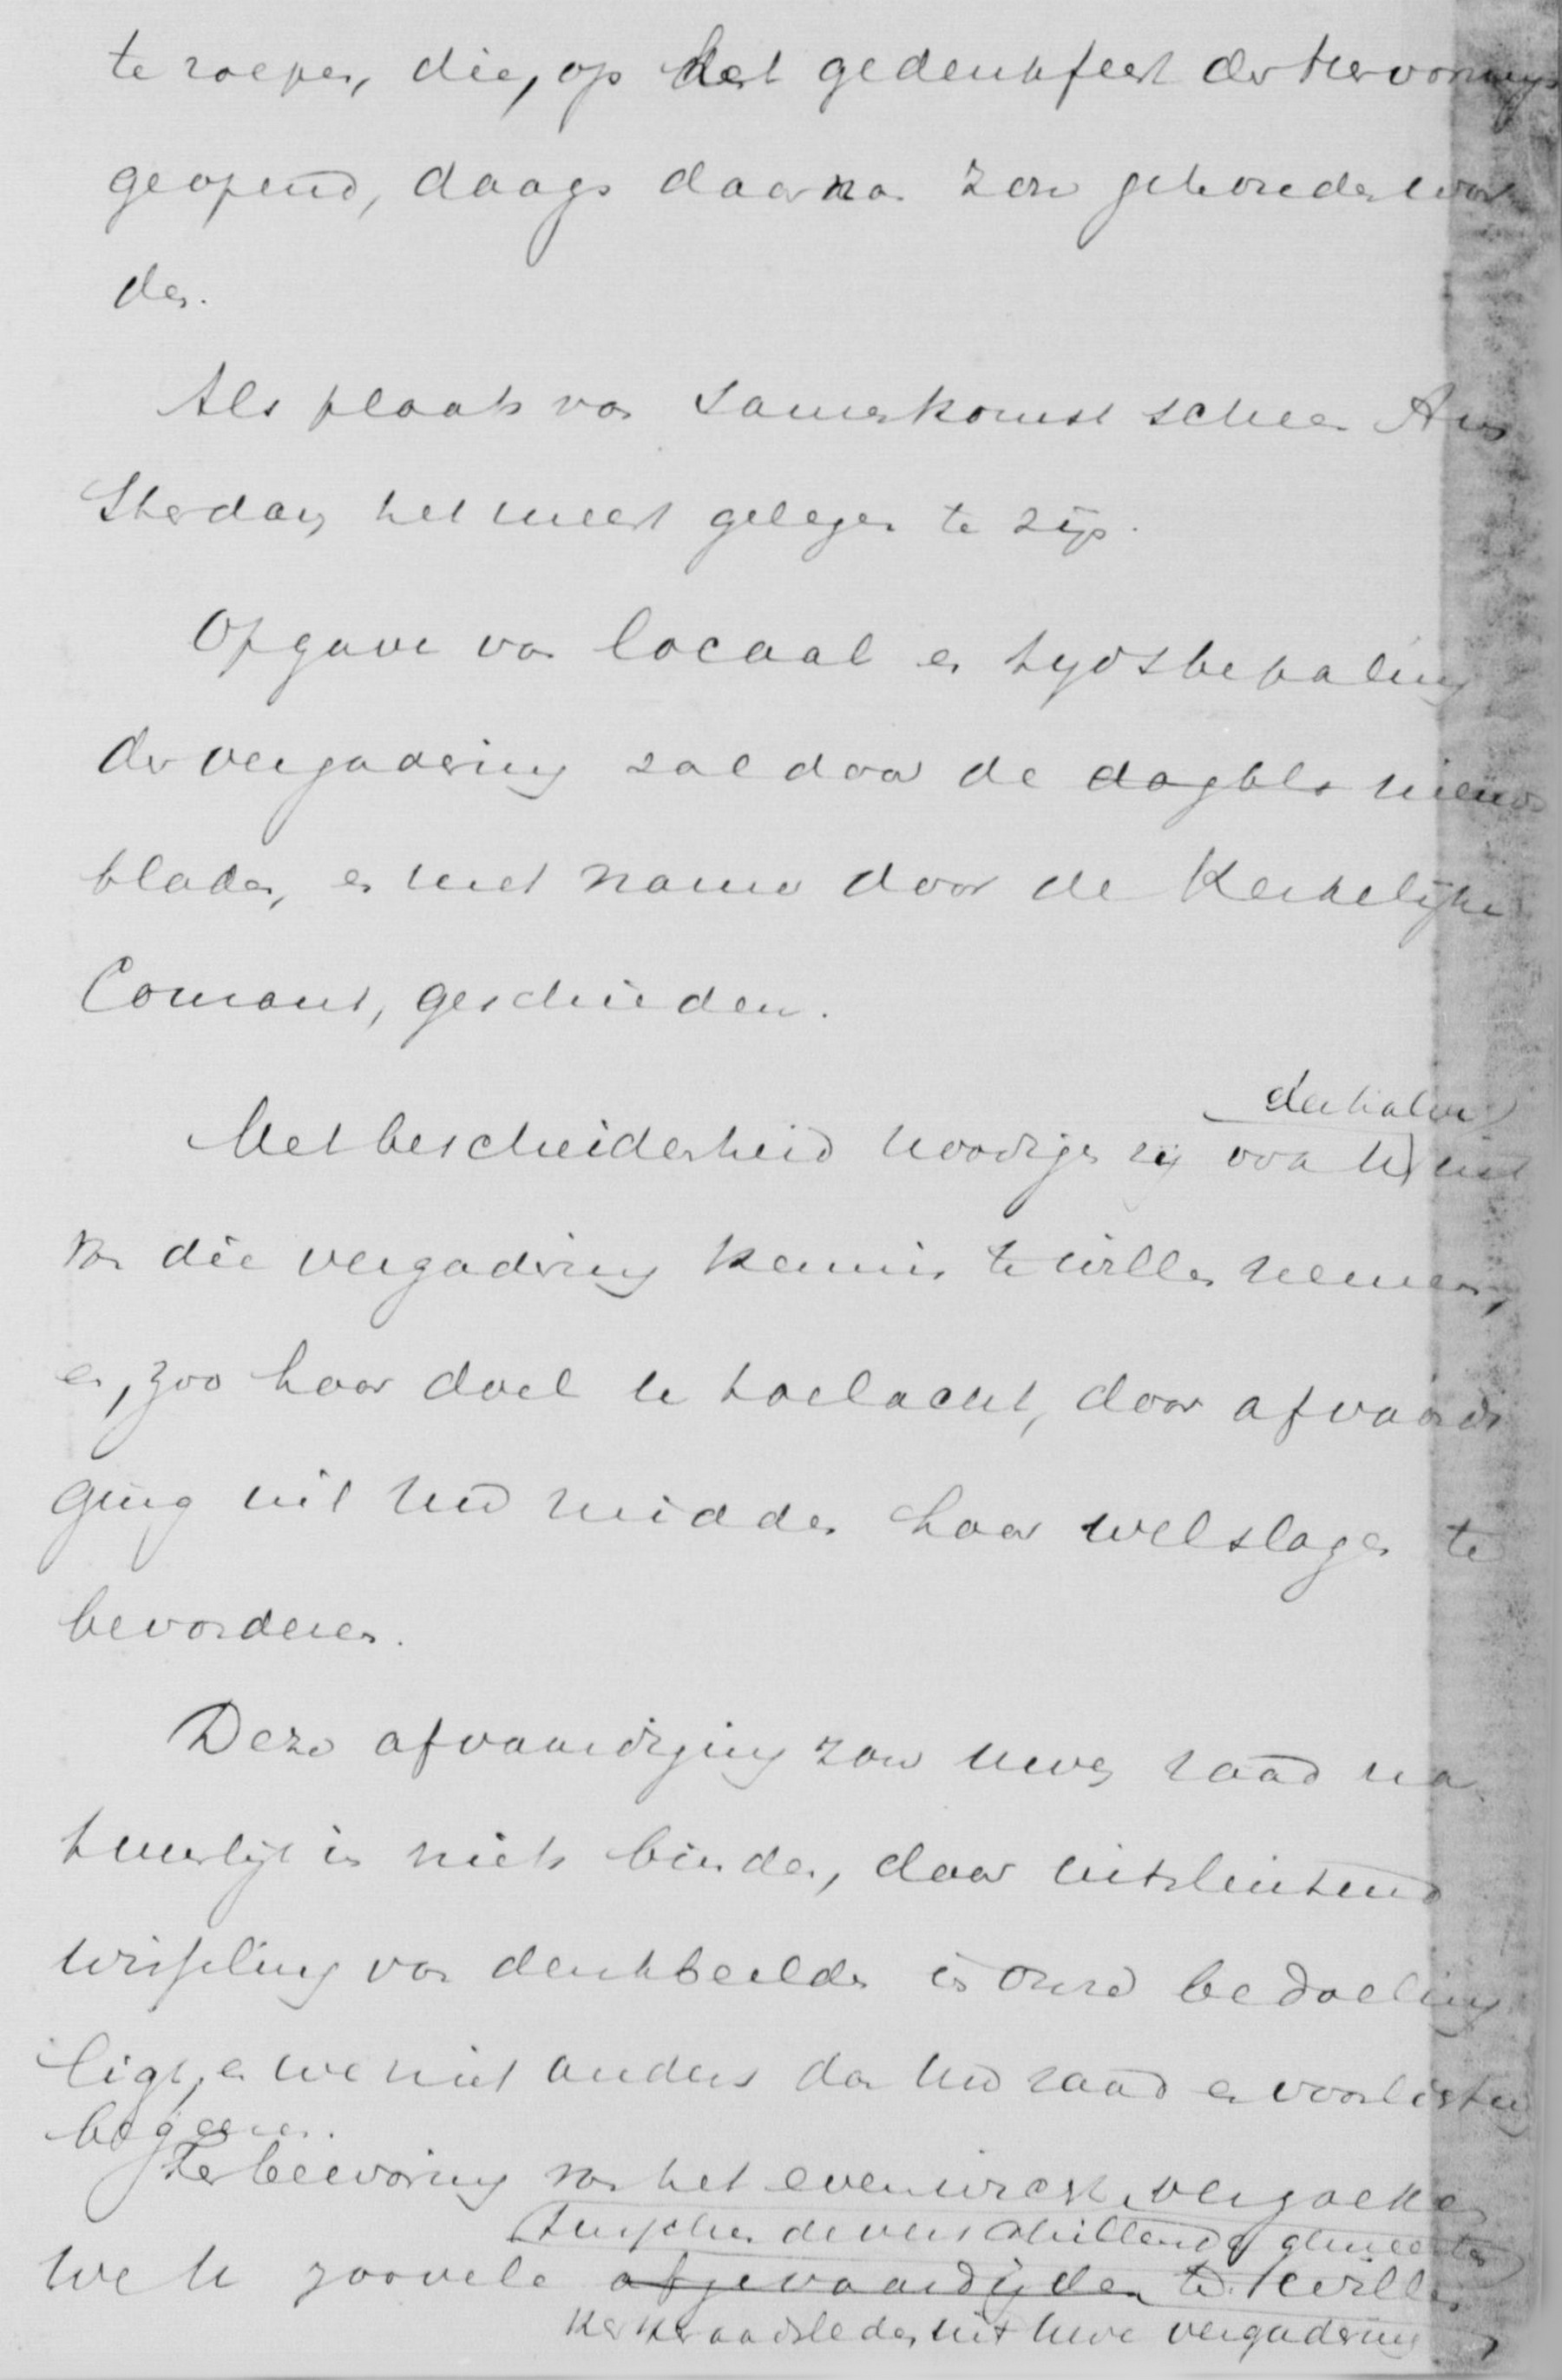 te roepen, die, op het gedenkfeest der Hervorming
geopend, daags daarna zou gehouden wor
den.
Als plaats van samenkomst scheen Am
sterdam het meest gelegen te zijn.
Opgave van locaal en tydsbepaling
der vergadering zal door de dagbla nieuws
bladen, en met name door de Kerkelijke
Courant, geschieden.
derhalve
Met bescheidenheid noodigen wij ook U uit
van die vergadering kennis te willen nemen,
en, zoo haar doel U toelacht, door afvaardi
ging uit Uw midden haar welslagen te
bevorderen.
Deze afvaardiging zou uwen raad na
tuurlijk in niets binden, daar uitsluitend
wisseling van denkbeelden in onze bedoeling
ligt, en we niet anders dan Uw raad en voorlichting
begeeren.
Ter bewaring van het evenwicht verzoeken
tusschen de verschillende gemeenten
we U zoovele afgevaardigden te willen
Kerkeraadsleden uit Uwe vergadering